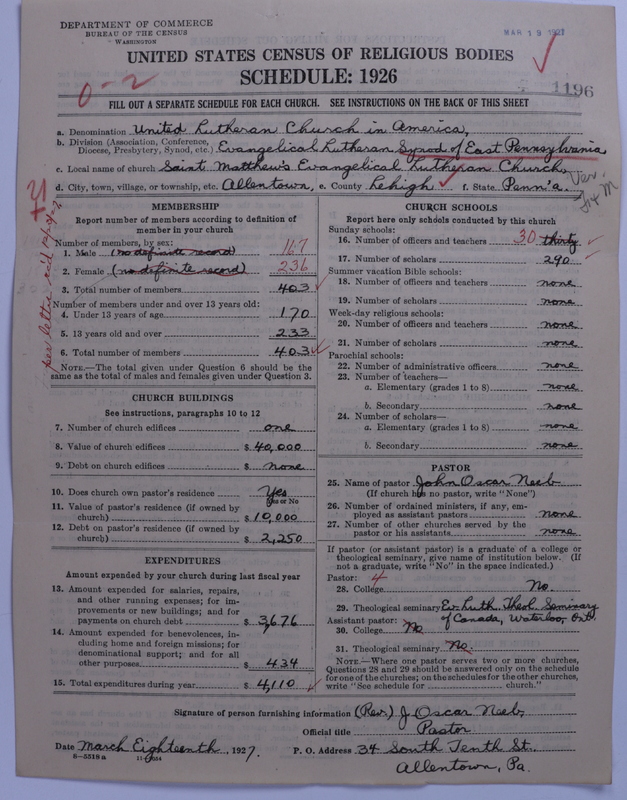 DEPARTMENT OF COMMERCE
BUREAU OF THE CENSUS
WASHINGTON
MAR 19 1927
UNITED STATES CENSUS OF RELIGIOUS BODIES
SCHEDULE: 1926
0-2
1196
FILL OUT A SEPARATE SCHEDULE FOR EACH CHURCH. SEE INSTRUCTIONS ON THE BACK OF THIS SHEET
a. Denomination United Lutheran Church in America,
b. Division (Association, Conference, Diocese, Presbytery, Synod, etc.) Evangelical Lutheran Synod of East Pennsylvania
c. Local name of church Saint Matthew's Evangelical Lutheran Church,
d. City, town, village, or township, etc. Allentown, e. County Lehigh f. State Penn'a.
Ver.
MEMBERSHIP
Report number of members according to definition of
member in your church
Number of members, by sex:
1. Male (no definite record) 167
2. Female (no definite record) 236
3. Total number of members 403
Number of members under and over 13 years old:
4. Under 13 years of age 170
5. 13 years old and over 233
6. Total number of members 403
NOTE.—The total given under Question 6 should be the
same as the total of males and females given under Question 3.
CHURCH BUILDINGS
See instructions, paragraphs 10 to 12
7. Number of church edifices one
8. Value of church edifices $ 40,000
9. Debt on church edifices $ none
10. Does church own pastor's residence Yes
Yes or No
11. Value of pastor's residence (if owned by
church) $ 10,000
12. Debt on pastor's residence (if owned by
church) $ 2,250
EXPENDITURES
Amount expended by your church during last fiscal year
13. Amount expended for salaries, repairs,
and other running expenses; for im-
provements or new buildings; and for
payments on church debt $ 3,676
14. Amount expended for benevolences, in-
cluding home and foreign missions; for
denominational support; and for all
other purposes $ 434
15. Total expenditures during year $ 4,110
CHURCH SCHOOLS
Report here only schools conducted by this church
Sunday schools:
16. Number of officers and teachers 30 thirty
17. Number of scholars 290
Summer vacation Bible schools:
18. Number of officers and teachers none
19. Number of scholars none
Week-day religious schools:
20. Number of officers and teachers none
21. Number of scholars none
Parochial schools:
22. Number of administrative officers none
23. Number of teachers—
a. Elementary (grades 1 to 8) none
b. Secondary none
24. Number of scholars—
a. Elementary (grades 1 to 8) none
b. Secondary none
PASTOR
25. Name of pastor John Oscar Neeb
(If church has no pastor, write "None")
26. Number of ordained ministers, if any, em-
ployed as assistant pastors none
27. Number of other churches served by the
pastor or his assistants none
If pastor (or assistant pastor) is a graduate of a college or
theological seminary, give name of institution below. (If
not a graduate, write "No" in the space indicated.)
Pastor: 4
28. College No.
29. Theological seminary Ev. Luth. Theol. Seminary
of Canada, Waterloo, Ont.
Assistant pastor:
30. College No
31. Theological seminary No.
NOTE.—Where one pastor serves two or more churches,
Questions 28 and 29 should be answered only on the schedule
for one of the churches; on the schedules for the other churches,
write "See schedule for church."
Signature of person furnishing information (Rev.) J. Oscar Neeb
Official title Pastor
Date March Eighteenth, 1927. P. O. Address 34 South Tenth St.
Allentown, Pa.
8-5318 a